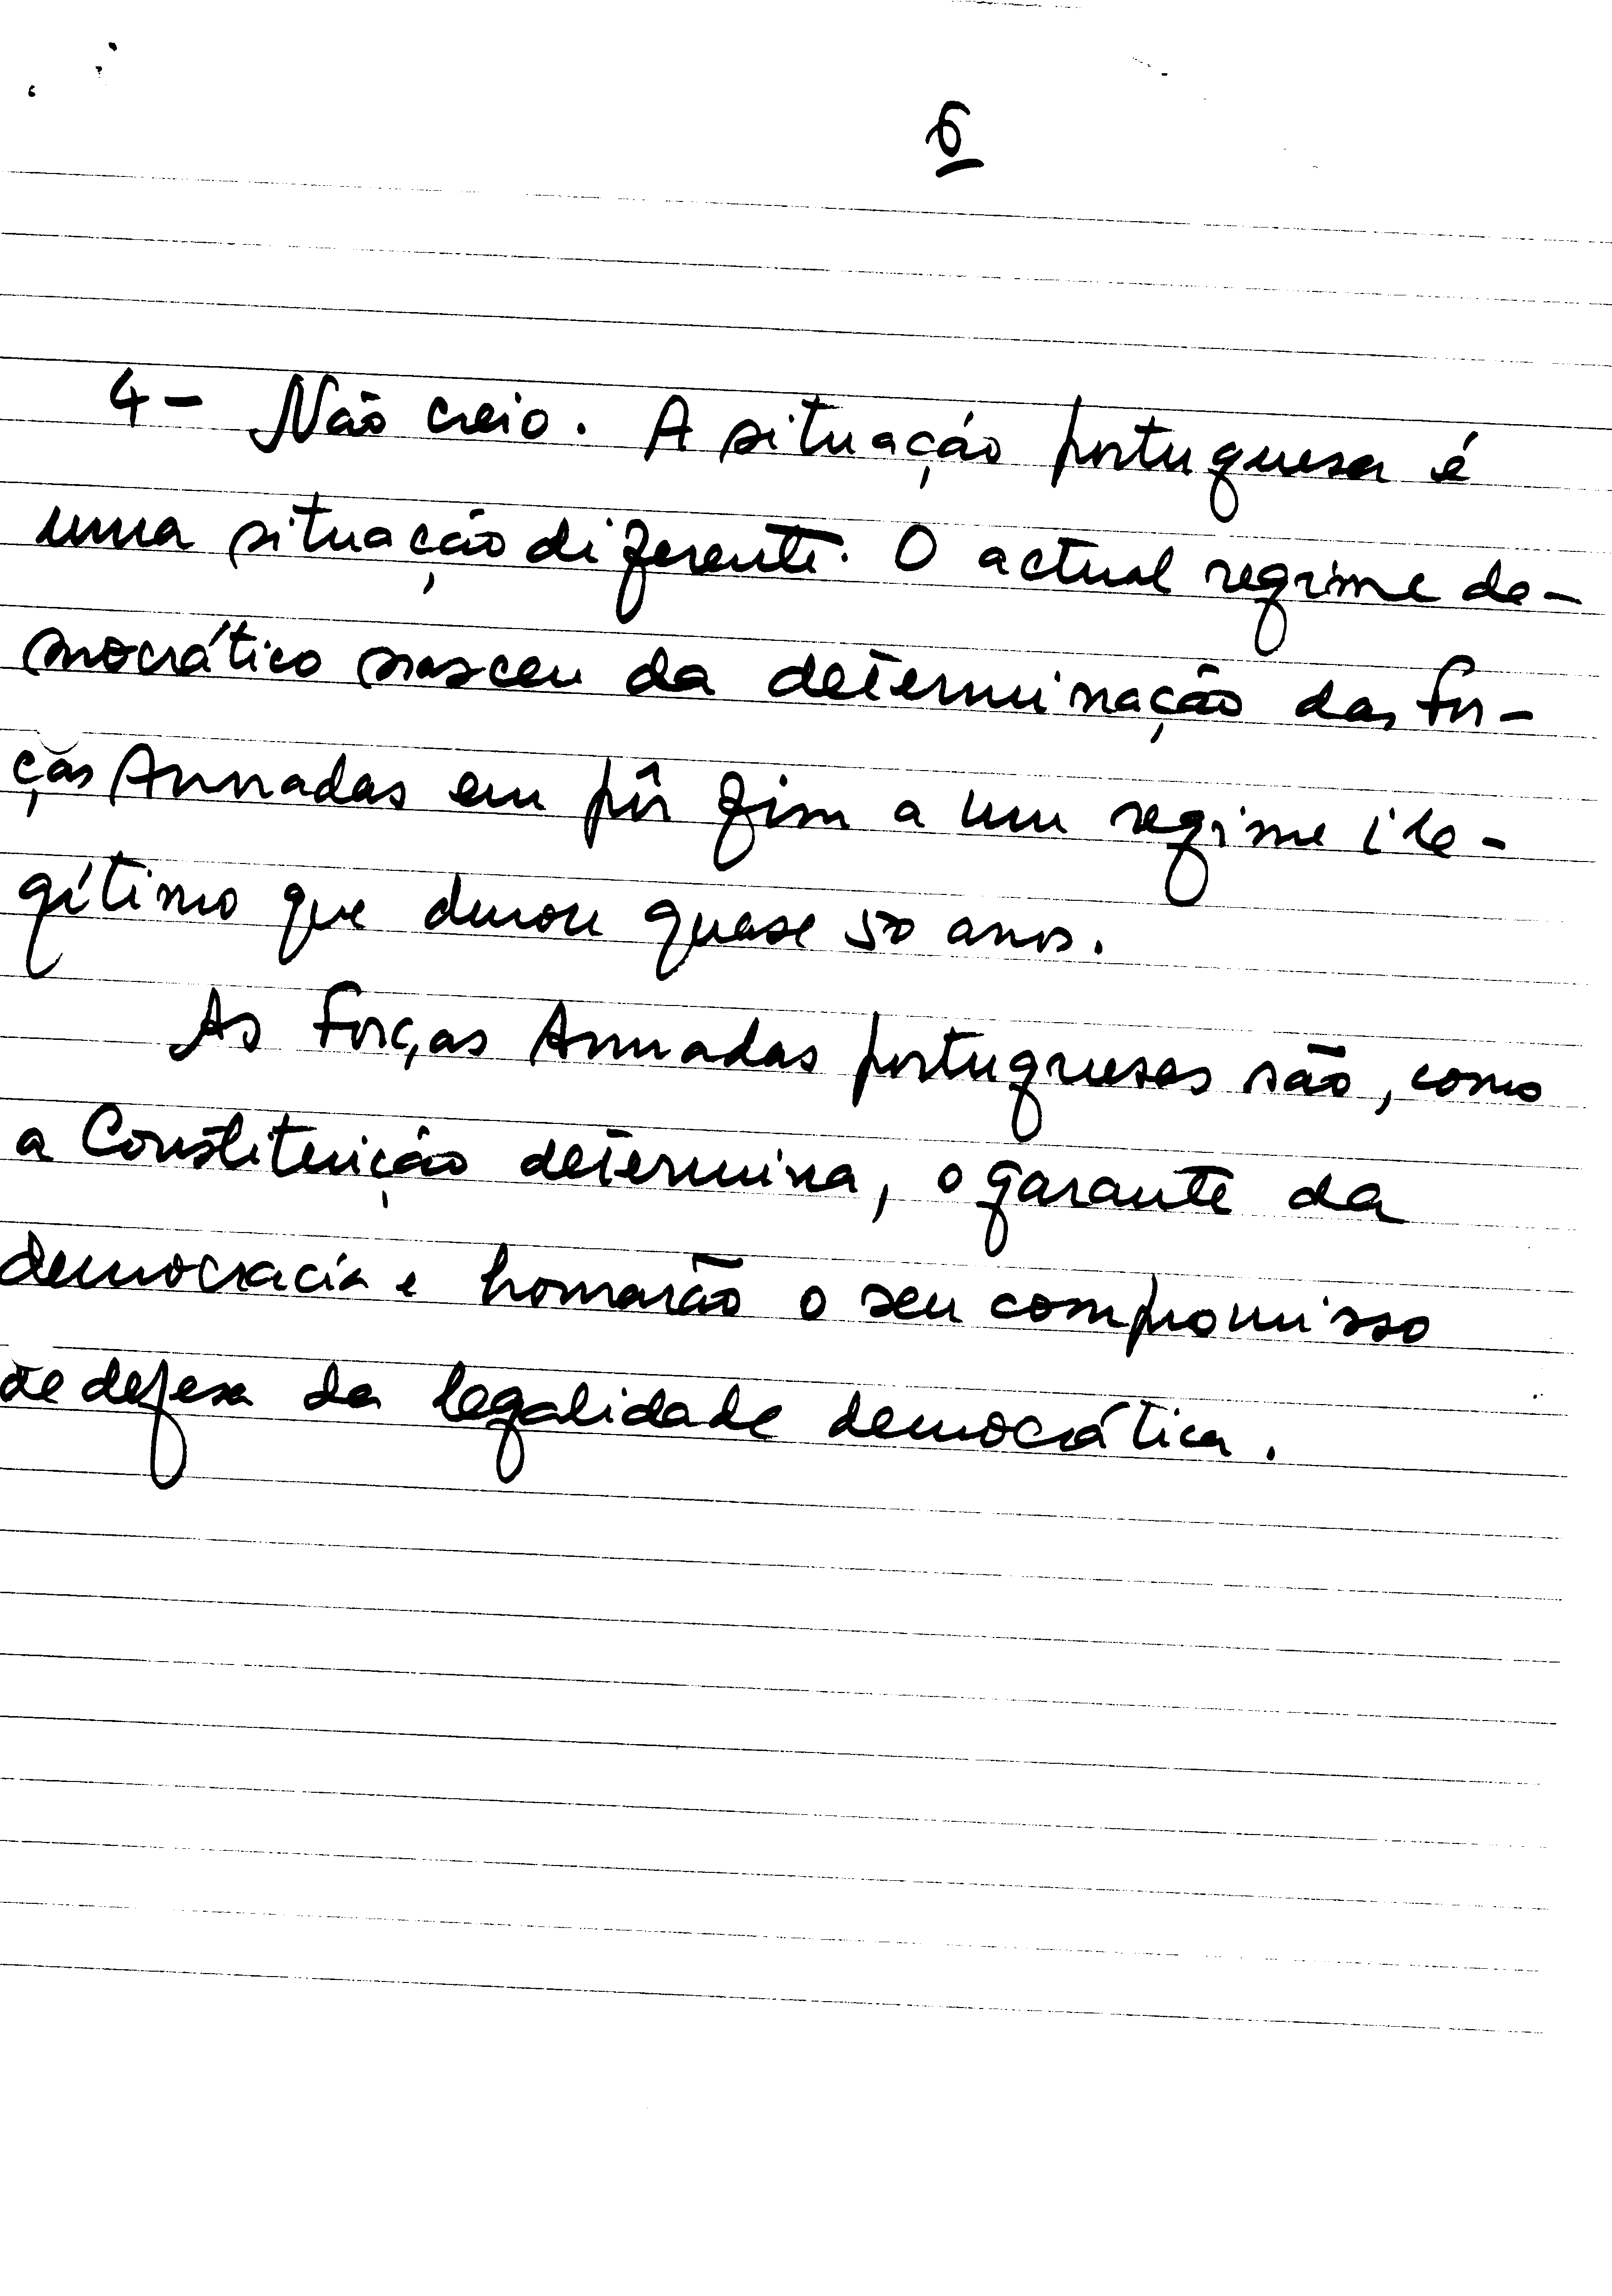 6
4- Não creio. A situação portuguesa é
uma situação diferente. O actual regime de-
mocrático nasceu da determinação das For-
ças Armadas em pôr fim a um regime ile-
gítimo que durou quase 50 anos.
As Forças Armadas portuguesas são, como
a Constituição determina, o garante da
democracia e honrarão o seu compromisso
de defesa da legalidade democrática.